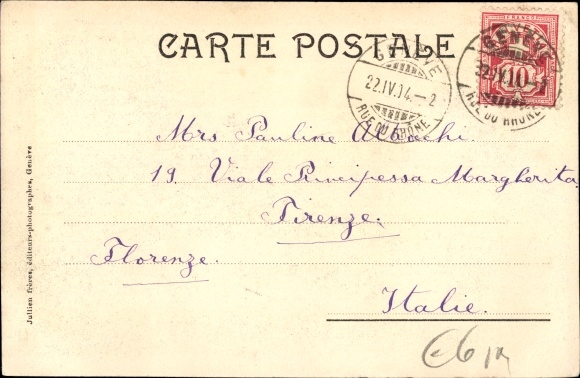 CARTE POSTALE
GENÈVE
22.IV.04.-2
RUE DU RHÔNE
FRANCO
10
GENÈVE
22.IV.
RUE DU RHÔNE
Mrs Pauline
19. Viale Principessa Margherita
Firenze.
Florenze.
Italie.
Jullien frères, éditeurs-photographes, Genève